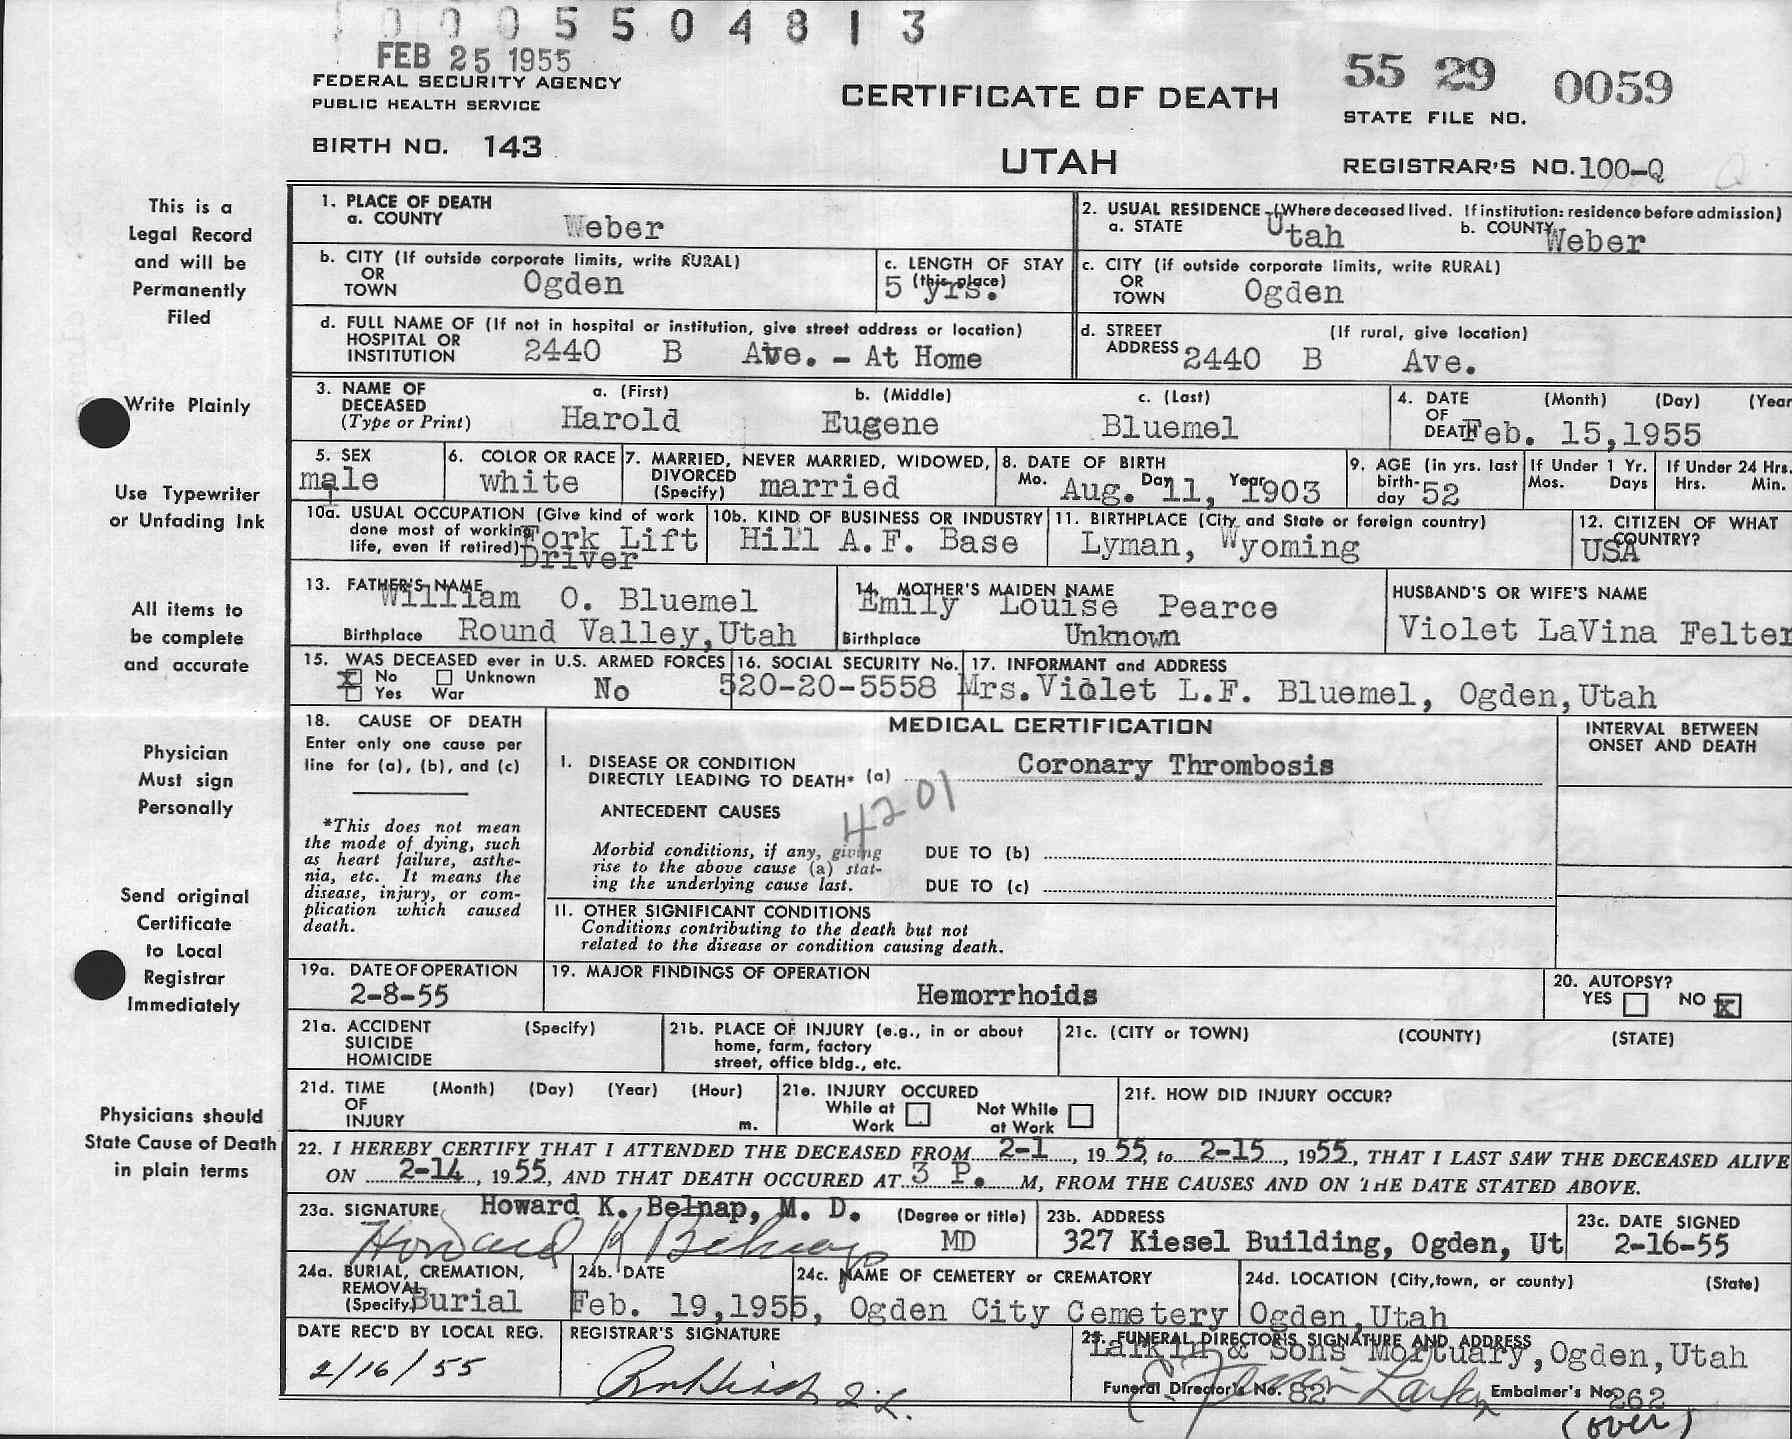 0005504813
FEB 25 1955
FEDERAL SECURITY AGENCY
PUBLIC HEALTH SERVICE
BIRTH NO. 143
CERTIFICATE OF DEATH
UTAH
55 29 0059
STATE FILE NO.
REGISTRAR'S NO. 100-Q
This is a
Legal Record
and will be
Permanently
Filed
Write Plainly
Use Typewriter
or Unfading Ink
All items to
be complete
and accurate
Physician
Must sign
Personally
Send original
Certificate
to Local
Registrar
Immediately
Physicians should
State Cause of Death
in plain terms
1. PLACE OF DEATH
a. COUNTY Weber
2. USUAL RESIDENCE (Where deceased lived. If institution: residence before admission)
a. STATE Utah b. COUNTY Weber
b. CITY (If outside corporate limits, write RURAL)
OR
TOWN Ogden
c. LENGTH OF STAY
(this place)
5 yrs.
c. CITY (if outside corporate limits, write RURAL)
OR
TOWN Ogden
d. FULL NAME OF (If not in hospital or institution, give street address or location)
HOSPITAL OR
INSTITUTION 2440 B Ave. - At Home
d. STREET (If rural, give location)
ADDRESS 2440 B Ave.
3. NAME OF DECEASED (Type or Print)
a. (First) b. (Middle) c. (Last)
Harold Eugene Bluemel
4. DATE OF DEATH (Month) (Day) (Year
Feb. 15,1955
5. SEX
male
6. COLOR OR RACE
white
7. MARRIED, NEVER MARRIED, WIDOWED,
DIVORCED
(Specify) married
8. DATE OF BIRTH
Mo. Day Year
Aug. 11, 1903
9. AGE (in yrs. last
birth-
day 52
If Under 1 Yr.
Mos. Days
If Under 24 Hrs.
Hrs. Min.
10a. USUAL OCCUPATION (Give kind of work
done most of working
life, even if retired) Fork Lift
Driver
10b. KIND OF BUSINESS OR INDUSTRY
Hill A.F. Base
11. BIRTHPLACE (City and State or foreign country)
Lyman, Wyoming
12. CITIZEN OF WHAT
COUNTRY?
USA
13. FATHER'S NAME
William O. Bluemel
Birthplace Round Valley,Utah
14. MOTHER'S MAIDEN NAME
Emily Louise Pearce
Birthplace Unknown
HUSBAND'S OR WIFE'S NAME
Violet LaVina Felter
15. WAS DECEASED ever in U.S. ARMED FORCES
X No Unknown
Yes War No
16. SOCIAL SECURITY No.
520-20-5558
17. INFORMANT and ADDRESS
Mrs.Violet L.F. Bluemel, Ogden,Utah
18. CAUSE OF DEATH
Enter only one cause per
line for (a), (b), and (c)
*This does not mean
the mode of dying, such
as heart failure, asthe-
nia, etc. It means the
disease, injury, or com-
plication which caused
death.
MEDICAL CERTIFICATION
INTERVAL BETWEEN
ONSET AND DEATH
I. DISEASE OR CONDITION
DIRECTLY LEADING TO DEATH* (a) Coronary Thrombosis
4201
ANTECEDENT CAUSES
Morbid conditions, if any, giving
rise to the above cause (a) stat-
ing the underlying cause last.
DUE TO (b)
DUE TO (c)
II. OTHER SIGNIFICANT CONDITIONS
Conditions contributing to the death but not
related to the disease or condition causing death.
19a. DATE OF OPERATION
2-8-55
19. MAJOR FINDINGS OF OPERATION
Hemorrhoids
20. AUTOPSY?
YES NO X
21a. ACCIDENT (Specify)
SUICIDE
HOMICIDE
21b. PLACE OF INJURY (e.g., in or about
home, farm, factory
street, office bldg., etc.
21c. (CITY or TOWN) (COUNTY) (STATE)
21d. TIME (Month) (Day) (Year) (Hour)
OF
INJURY m.
21e. INJURY OCCURED
While at Work Not While at Work
21f. HOW DID INJURY OCCUR?
22. I HEREBY CERTIFY THAT I ATTENDED THE DECEASED FROM 2-1, 1955, to 2-15, 1955, THAT I LAST SAW THE DECEASED ALIVE
ON 2-14, 1955, AND THAT DEATH OCCURED AT 3 P. M, FROM THE CAUSES AND ON THE DATE STATED ABOVE.
23a. SIGNATURE Howard K. Belnap, M. D. (Degree or title)
Howard K Belnap MD
23b. ADDRESS
327 Kiesel Building, Ogden, Ut
23c. DATE SIGNED
2-16-55
24a. BURIAL, CREMATION,
REMOVAL
(Specify) Burial
24b. DATE
Feb. 19,1955,
24c. NAME OF CEMETERY or CREMATORY
Ogden City Cemetery
24d. LOCATION (City,town, or county) (State)
Ogden,Utah
DATE REC'D BY LOCAL REG.
2/16/55
REGISTRAR'S SIGNATURE
25. FUNERAL DIRECTOR'S SIGNATURE AND ADDRESS
Larkin & Sons Mortuary,Ogden,Utah
Funeral Director's No. 82 Embalmer's No. 262
(over)